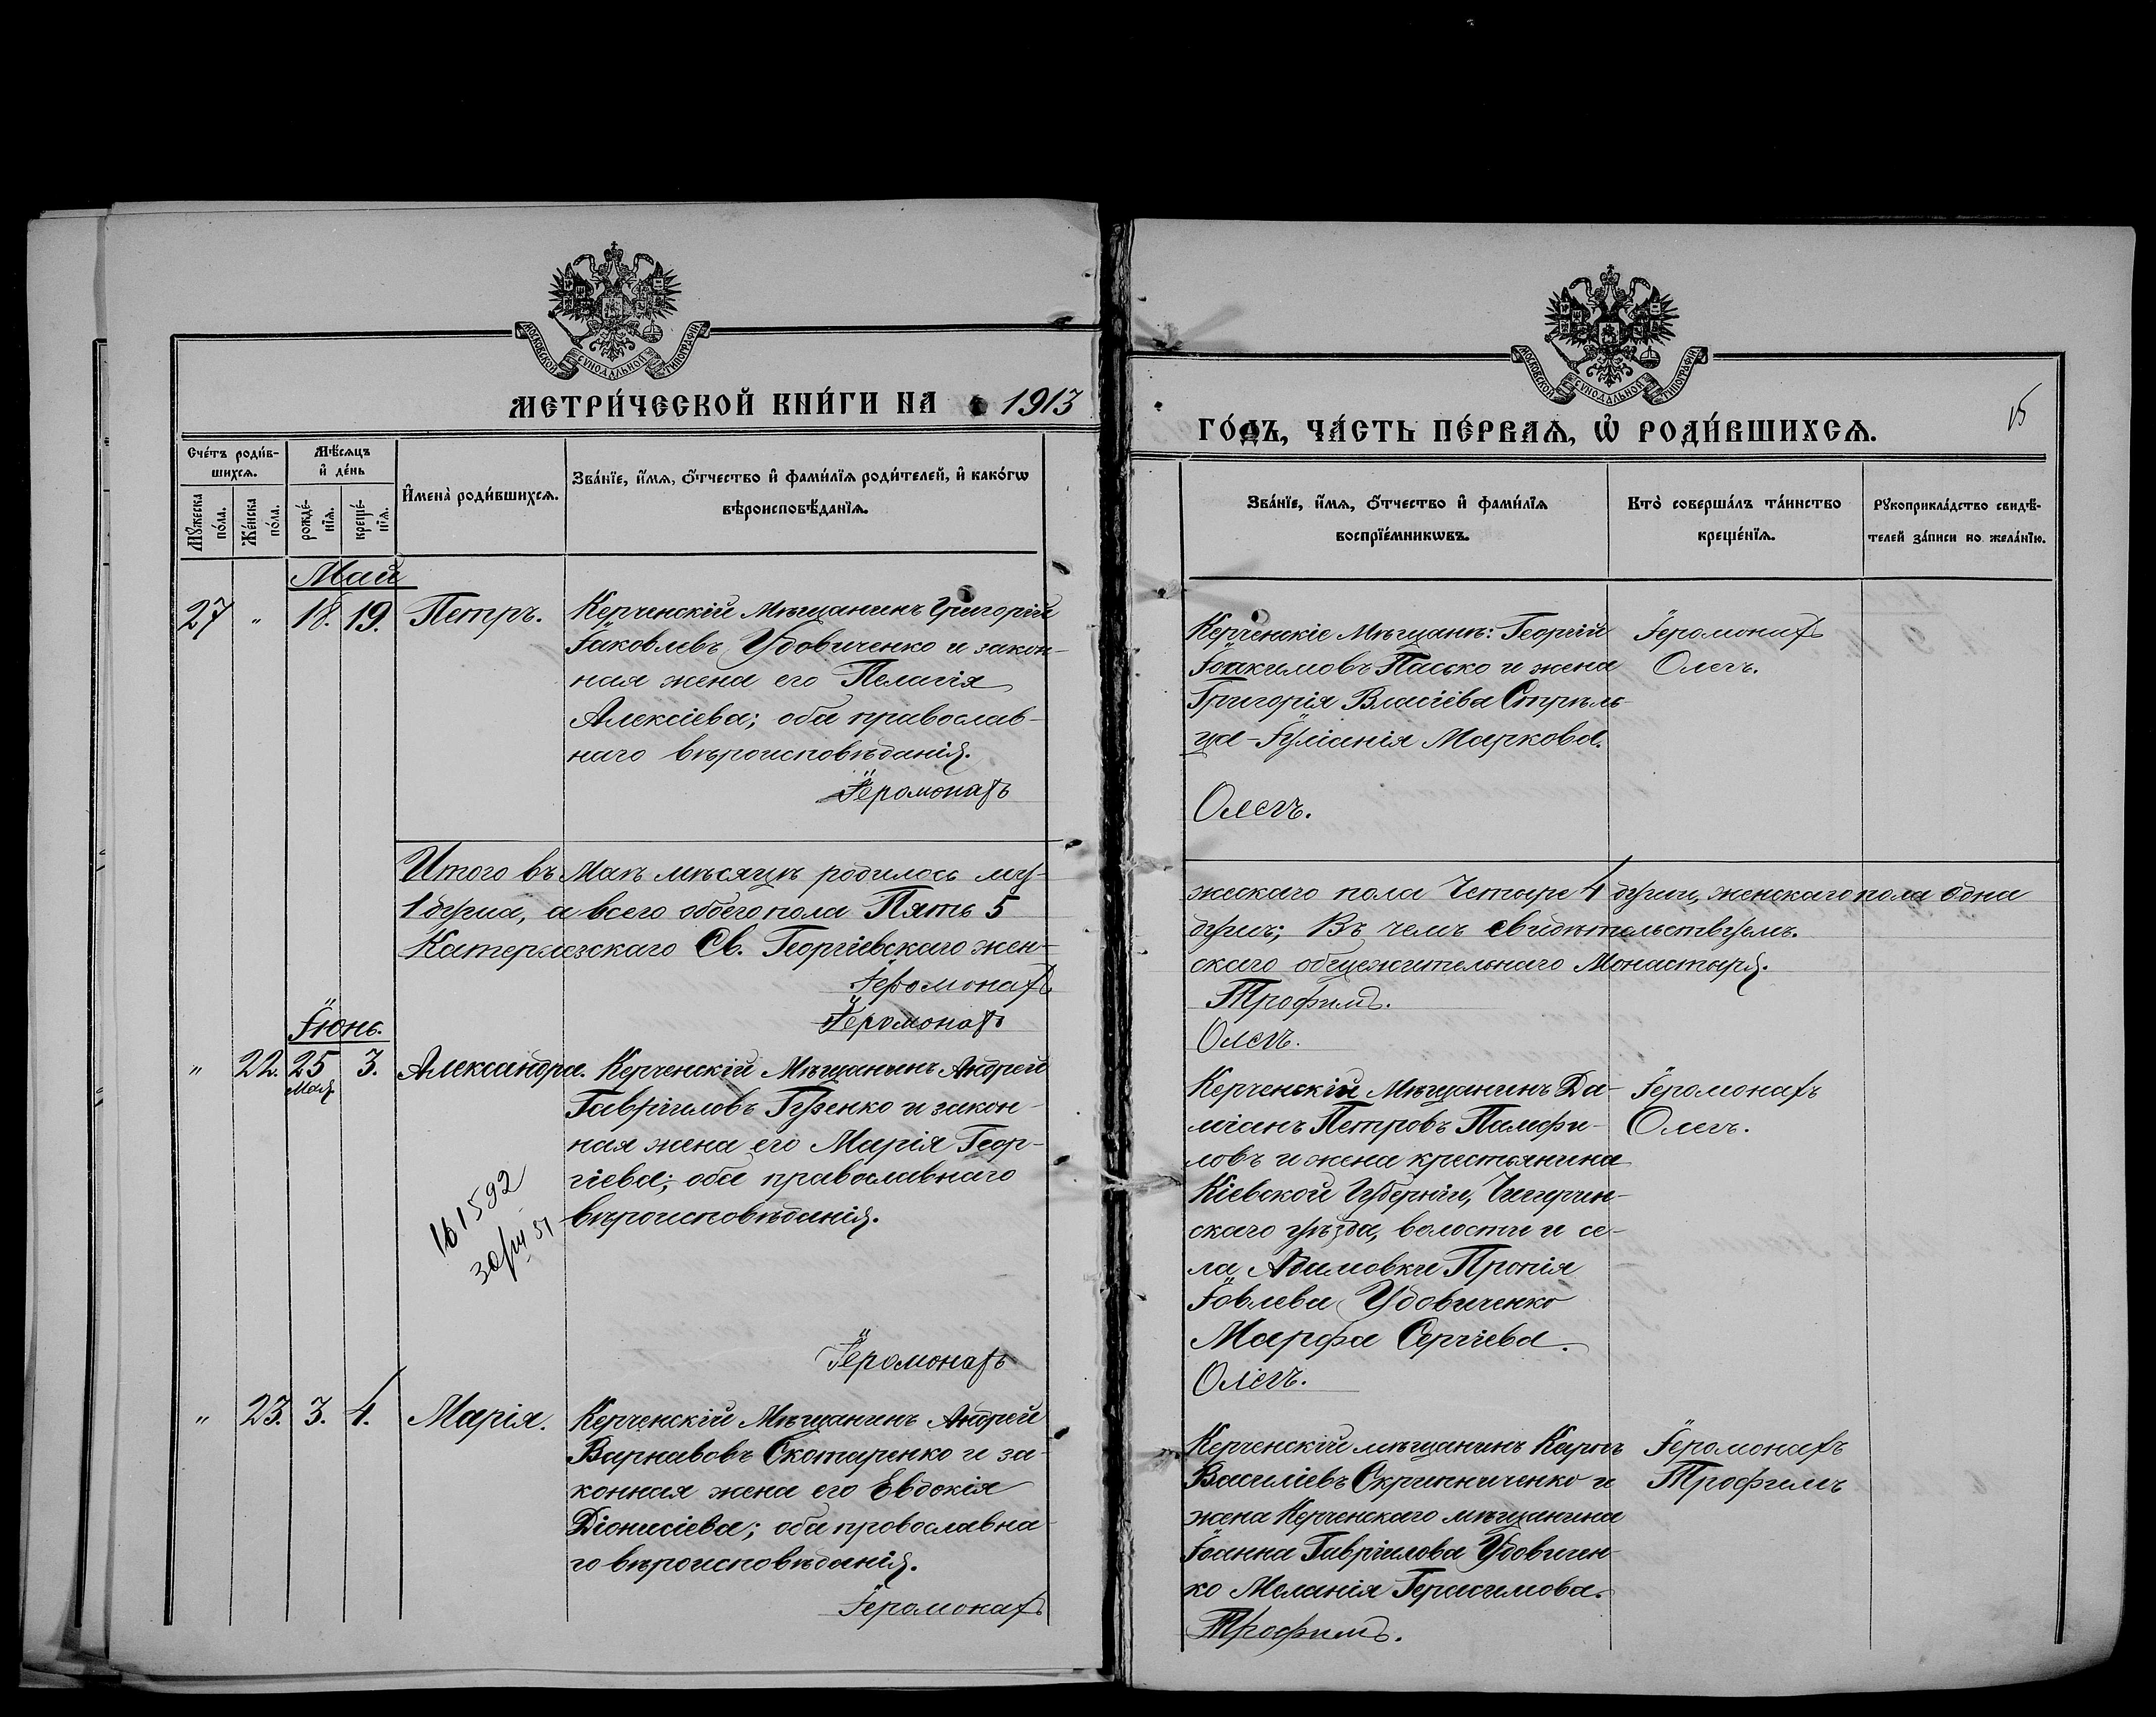 МОСКОВСКОЙ СУНОДАЛЬНОЙ ТИПОГРАФІИ
МЕТРИ́ЧЕСКОЙ КНИ́ГИ НА 1913
Сче́тъ роди́в-
шихсѧ.
Мѣ́сѧцъ
и҆ де́нь
Мꙋ́жеска
по́ла.
Же́нска
по́ла.
рожде́-
нїѧ.
креще́-
нїѧ.
И҆мена̀ роди́вшихсѧ.
Зва́нїе, и҆́мѧ, ѻ҆́тчество и҆ фами́лїѧ роди́телей, и҆ како́гѡ
вѣроисповѣ́данїѧ.
Май
27 " 18. 19. Петръ.
Керченскій Мѣщанинъ Григорій
Іаковлевъ Удовиченко и закон-
ная жена его Пелагія
Алексіева; оба православ-
наго вѣроисповѣданія.
Іеромонахъ
Итого въ Маѣ мѣсяцѣ родилось му-
1 душа, а всего обоего пола Пять 5
Катерлезскаго Св. Георгіевскаго жен-
Іеромонахъ
Іеромонахъ
Іюнь.
" 22. 25 3. Александра.
Мая
Керченскій Мѣщанинъ Андрей
Гавріиловъ Гузенко и закон-
ная жена его Марія Геор-
гіева; оба православнаго
вѣроисповѣданія.
161592
Іеромонахъ
" 23. 3. 4. Марія.
Керченскій Мѣщанинъ Андрей
Варнавовъ Скотаренко и за-
конная жена его Евдокія
Діонисіева; оба православна-
го вѣроисповѣданія.
Іеромонахъ
МОСКОВСКОЙ СУНОДАЛЬНОЙ ТИПОГРАФІИ
15
ГО́ДЪ, ЧА́СТЬ ПЕ́РВАѦ, Ѡ҆ РОДИ́ВШИХСѦ.
Зва́нїе, и҆́мѧ, ѻ҆́тчество и҆ фами́лїѧ
воспрїе́мникѡвъ.
Кто̀ соверша́лъ та́инство
креще́нїѧ.
Рꙋкоприкла́дство свидѣ́-
телей за́писи по жела́нїю.
Керченскіе Мѣщане: Георгій
Іоакимовъ Пасько и жена
Григорія Власіева Стрѣль-
ца-Іуліанія Маркова.
Іеромонахъ
Олегъ.
Олегъ.
жескаго пола Четыре 4 души, женскаго пола одна
душъ; Въ чемъ свидѣтельствуемъ.
скаго общежительнаго Монастыря.
Трофимъ.
Олегъ.
Керченскій Мѣщанинъ Да-
міанъ Петровъ Памфи-
ловъ и жена крестьянина
Кіевской Губерніи, Чигирин-
скаго уѣзда, волости и се-
ла Адамовки Прокія
Іовлева Удовиченко
Марфа Сергіева.
Іеромонахъ
Олегъ.
Олегъ.
Керченскій мѣщанинъ Карпъ
Василіевъ Скрипниченко и
жена Керченскаго мѣщанина
Іоанна Гавріилова Удовичен-
ко Меланія Герасимова.
Іеромонахъ
Трофимъ
Трофимъ.